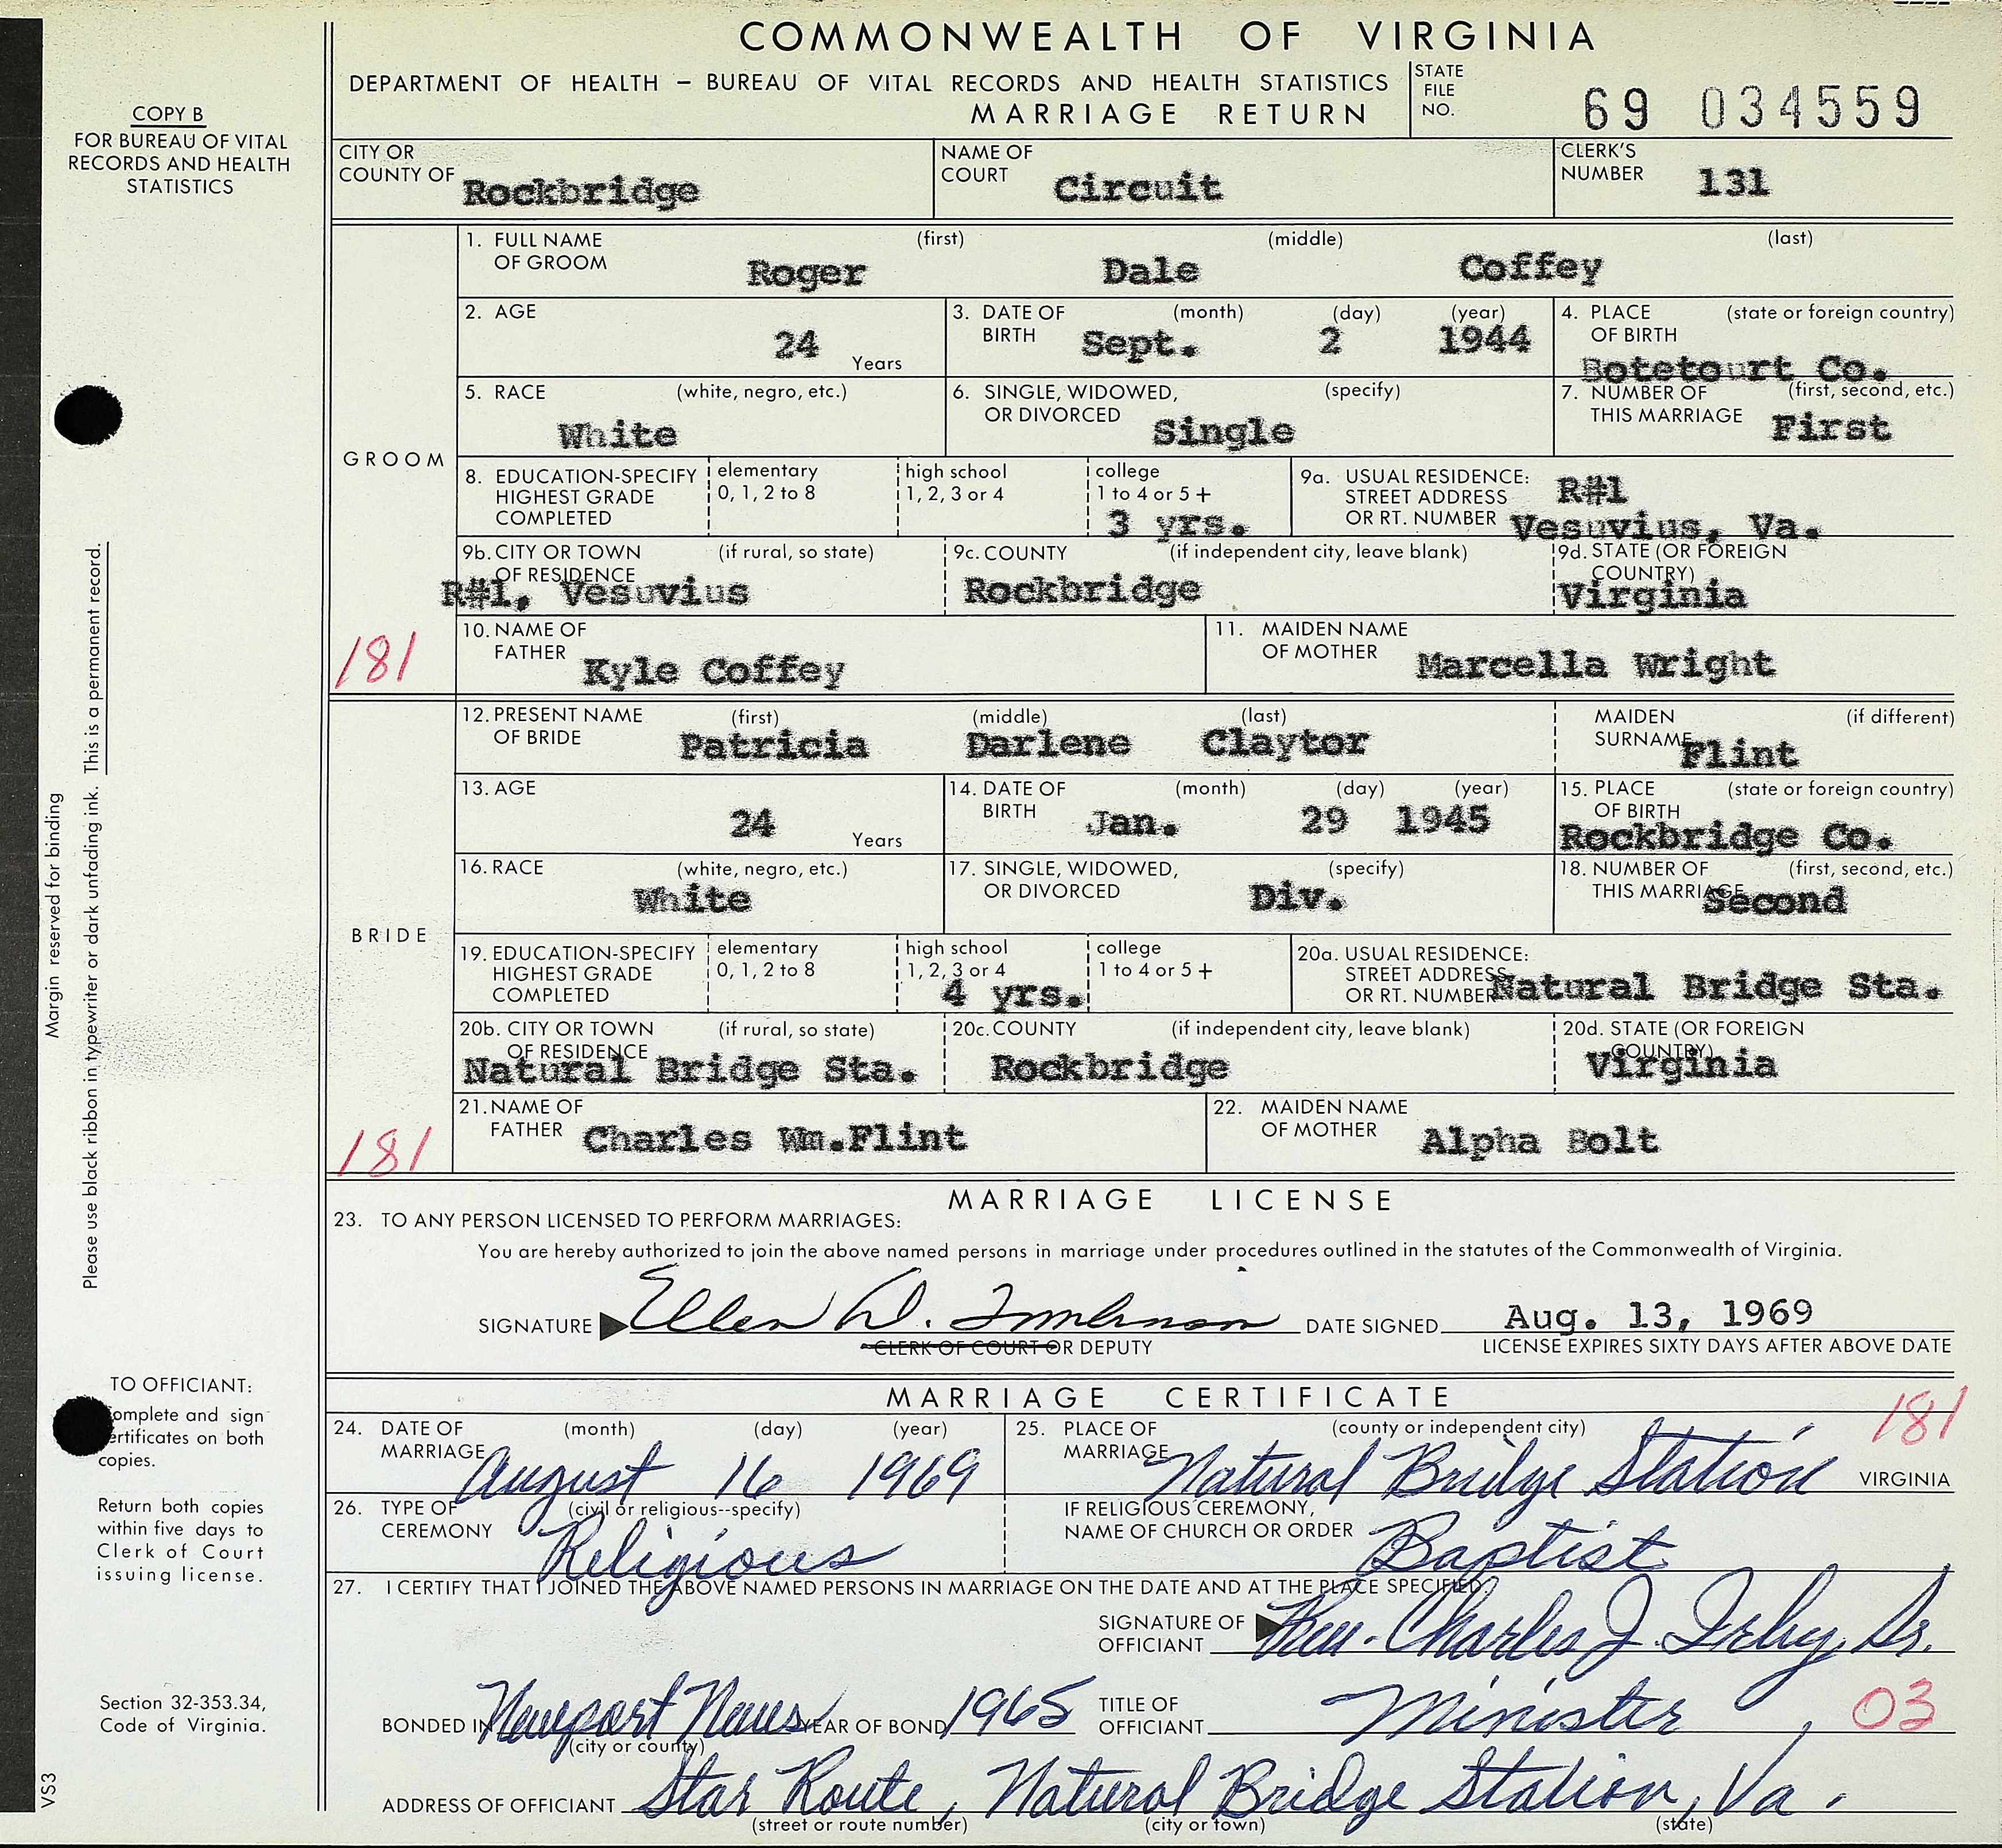 COMMONWEALTH OF VIRGINIA
DEPARTMENT OF HEALTH – BUREAU OF VITAL RECORDS AND HEALTH STATISTICS
MARRIAGE RETURN
STATE FILE NO. 69 034559
COPY B
FOR BUREAU OF VITAL
RECORDS AND HEALTH
STATISTICS
CITY OR COUNTY OF Rockbridge NAME OF COURT Circuit CLERK'S NUMBER 131
GROOM
1. FULL NAME OF GROOM (first) Roger (middle) Dale (last) Coffey
2. AGE 24 Years 3. DATE OF BIRTH (month) Sept. (day) 2 (year) 1944 4. PLACE OF BIRTH (state or foreign country) Botetourt Co.
5. RACE (white, negro, etc.) White 6. SINGLE, WIDOWED, OR DIVORCED (specify) Single 7. NUMBER OF THIS MARRIAGE (first, second, etc.) First
8. EDUCATION-SPECIFY HIGHEST GRADE COMPLETED elementary 0, 1, 2 to 8 high school 1, 2, 3 or 4 college 1 to 4 or 5 + 3 yrs. 9a. USUAL RESIDENCE: STREET ADDRESS OR RT. NUMBER R#1 Vesuvius, Va.
9b. CITY OR TOWN OF RESIDENCE (if rural, so state) R#1, Vesuvius 9c. COUNTY (if independent city, leave blank) Rockbridge 9d. STATE (OR FOREIGN COUNTRY) Virginia
181
10. NAME OF FATHER Kyle Coffey 11. MAIDEN NAME OF MOTHER Marcella Wright
BRIDE
12. PRESENT NAME OF BRIDE (first) Patricia (middle) Darlene (last) Claytor MAIDEN SURNAME (if different) Flint
13. AGE 24 Years 14. DATE OF BIRTH (month) Jan. (day) 29 (year) 1945 15. PLACE OF BIRTH (state or foreign country) Rockbridge Co.
16. RACE (white, negro, etc.) White 17. SINGLE, WIDOWED, OR DIVORCED (specify) Div. 18. NUMBER OF THIS MARRIAGE (first, second, etc.) Second
19. EDUCATION-SPECIFY HIGHEST GRADE COMPLETED elementary 0, 1, 2 to 8 high school 1, 2, 3 or 4 4 yrs. college 1 to 4 or 5 + 20a. USUAL RESIDENCE: STREET ADDRESS OR RT. NUMBER Natural Bridge Sta.
20b. CITY OR TOWN OF RESIDENCE (if rural, so state) Natural Bridge Sta. 20c. COUNTY (if independent city, leave blank) Rockbridge 20d. STATE (OR FOREIGN COUNTRY) Virginia
181
21. NAME OF FATHER Charles Wm.Flint 22. MAIDEN NAME OF MOTHER Alpha Bolt
MARRIAGE LICENSE
23. TO ANY PERSON LICENSED TO PERFORM MARRIAGES:
You are hereby authorized to join the above named persons in marriage under procedures outlined in the statutes of the Commonwealth of Virginia.
SIGNATURE Ellen D. Tomlinson DATE SIGNED Aug. 13, 1969
CLERK OF COURT OR DEPUTY LICENSE EXPIRES SIXTY DAYS AFTER ABOVE DATE
MARRIAGE CERTIFICATE
181
24. DATE OF MARRIAGE (month) August (day) 16 (year) 1969 25. PLACE OF MARRIAGE (county or independent city) Natural Bridge Station VIRGINIA
26. TYPE OF CEREMONY (civil or religious--specify) Religious IF RELIGIOUS CEREMONY, NAME OF CHURCH OR ORDER Baptist
27. I CERTIFY THAT I JOINED THE ABOVE NAMED PERSONS IN MARRIAGE ON THE DATE AND AT THE PLACE SPECIFIED.
SIGNATURE OF OFFICIANT Rev. Charles J. Irby, Sr.
BONDED IN Newport News (city or county) YEAR OF BOND 1965 TITLE OF OFFICIANT Minister 03
ADDRESS OF OFFICIANT Star Route, Natural Bridge Station, Va.
(street or route number) (city or town) (state)
Margin reserved for binding
Please use black ribbon in typewriter or dark unfading ink. This is a permanent record.
TO OFFICIANT:
omplete and sign
ertificates on both
copies.
Return both copies
within five days to
Clerk of Court
issuing license.
Section 32-353.34,
Code of Virginia.
VS3